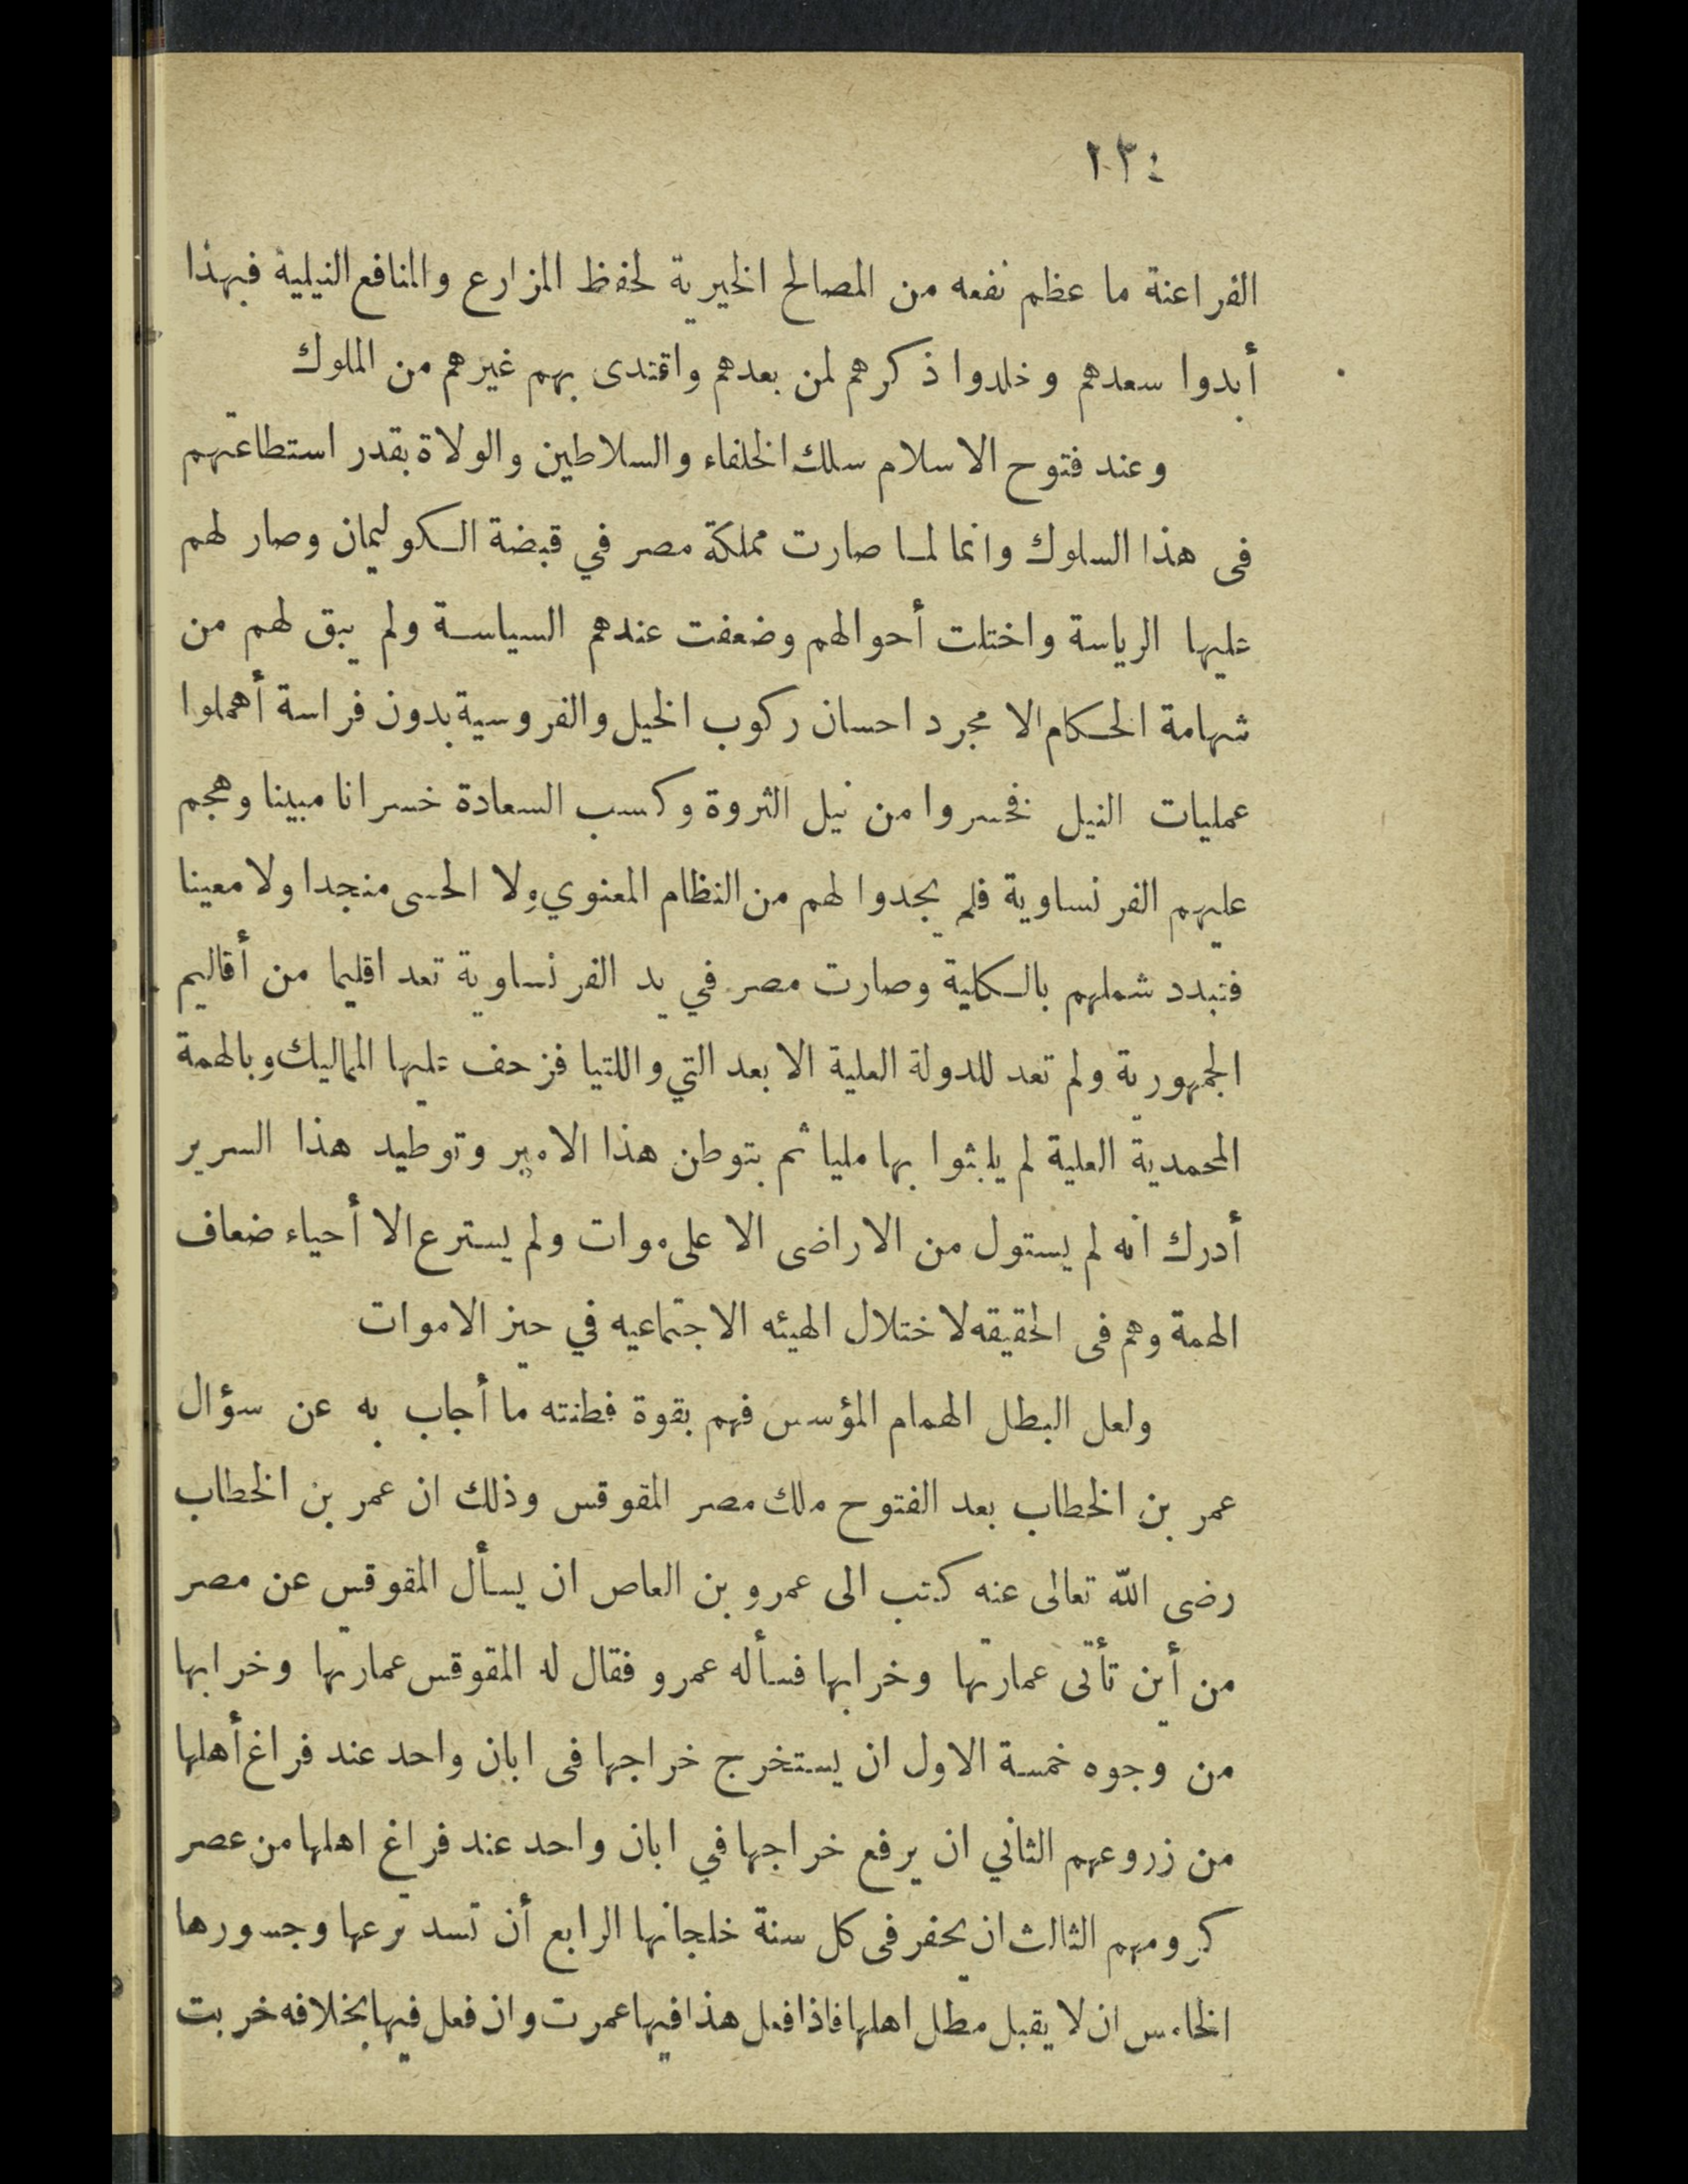 ٢٣٤
الفراعنة ما عظم نفعه من المصالح الخيرية لحفظ المزارع والمنافع النيلية فبهذا
أبدوا سعدهم وخلدوا ذكرهم لمن بعدهم واقتدى بهم غيرهم من الملوك
وعند فتوح الاسلام سلك الخلفاء والسلاطين والولاة بقدر استطاعتهم
فى هذا السلوك وانما لما صارت مملكة مصر في قبضة الكوليمان وصار لهم
عليها الرياسة واختلت أحوالهم وضعفت عندهم السياسة ولم يبق لهم من
شهامة الحكام الا مجرد احسان ركوب الخيل والفروسية بدون فراسة أهملوا
عمليات النيل فخسروا من نيل الثروة وكسب السعادة خسرانا مبينا وهجم
عليهم الفرنساوية فلم يجدوا لهم من النظام المعنوي ولا الحسى منجدا ولا معينا
فتبدد شملهم بالكلية وصارت مصر في يد الفرنساوية تعد اقليما من أقاليم
الجمهورية ولم تعد للدولة العلية الا بعد التي واللتيا فزحف عليها المماليك وبالهمة
المحمدية العلية لم يلبثوا بها مليا ثم بتوطن هذا الامير وتوطيد هذا السرير
أدرك انه لم يستول من الاراضى الا على موات ولم يسترع الا أحياء ضعاف
الهمة وهم فى الحقيقه لاختلال الهيئه الاجتماعيه في حيز الاموات
ولعل البطل الهمام المؤسس فهم بقوة فطنته ما أجاب به عن سؤال
عمر بن الخطاب بعد الفتوح ملك مصر المقوقس وذلك ان عمر بن الخطاب
رضى الله تعالى عنه كتب الى عمرو بن العاص ان يسأل المقوقس عن مصر
من أين تأتى عمارتها وخرابها فسأله عمرو فقال له المقوقس عمارتها وخرابها
من وجوه خمسة الاول ان يستخرج خراجها فى ابان واحد عند فراغ أهلها
من زروعهم الثاني ان يرفع خراجها في ابان واحد عند فراغ اهلها من عصر
كرومهم الثالث ان يحفر فى كل سنة خلجانها الرابع أن تسد ترعها وجسورها
الخامس ان لا يقبل مطل اهلها فاذا فعل هذا فيها عمرت وان فعل فيها بخلافه خربت